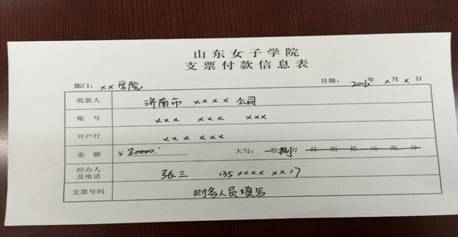 山东女子学院
支票付款信息表
部门：××学院 日期：2016年×月×日
收款人 济南市××××公司
账号 ××× ××× ×××
开户行 ××× ×××
金额 ￥80000. 大写： 拾捌万 仟 佰 拾 元 角 分
经办人及电话 张三 135××××××17
支票号码 财务人员填写